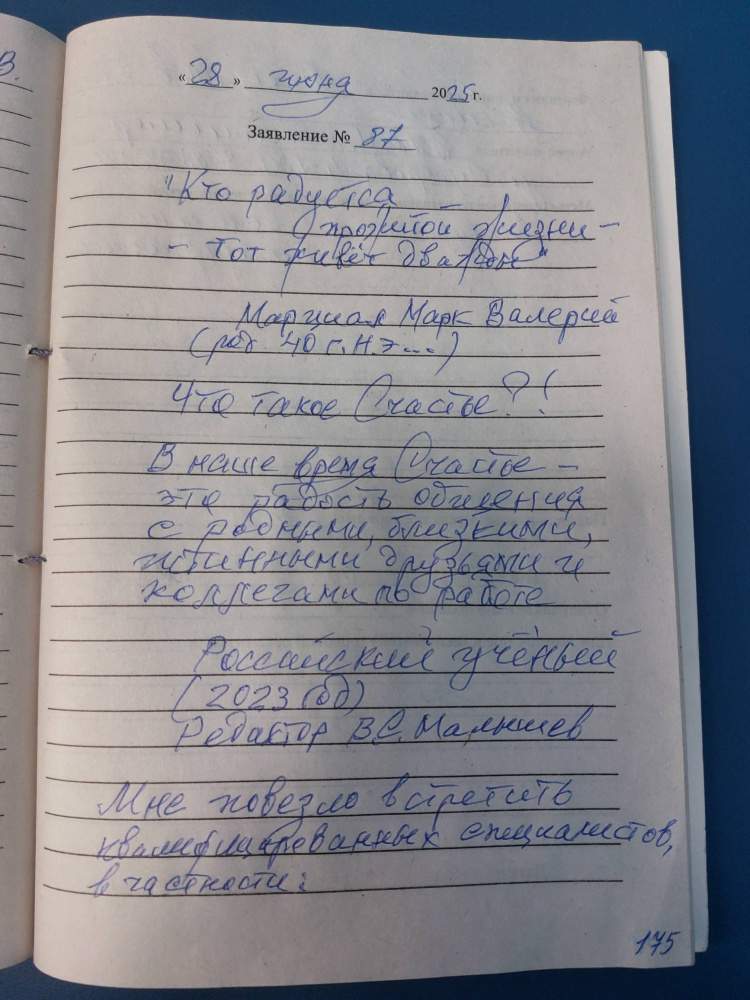 В.
«28» июня 2025 г.
Заявление № 87
"Кто радуется
прожитой жизни –
– Тот живёт дважды"
Марциал Марк Валерий
(род 40 г.н.э...)
Что такое Счастье?!
В наше время Счастье –
это радость общения
с родными, близкими,
истинными друзьями и
коллегами по работе
Российский учёный
(2023 год)
Редактор В.С. Малышев
Мне повезло встретить
квалифицированных специалистов,
в частности:
175